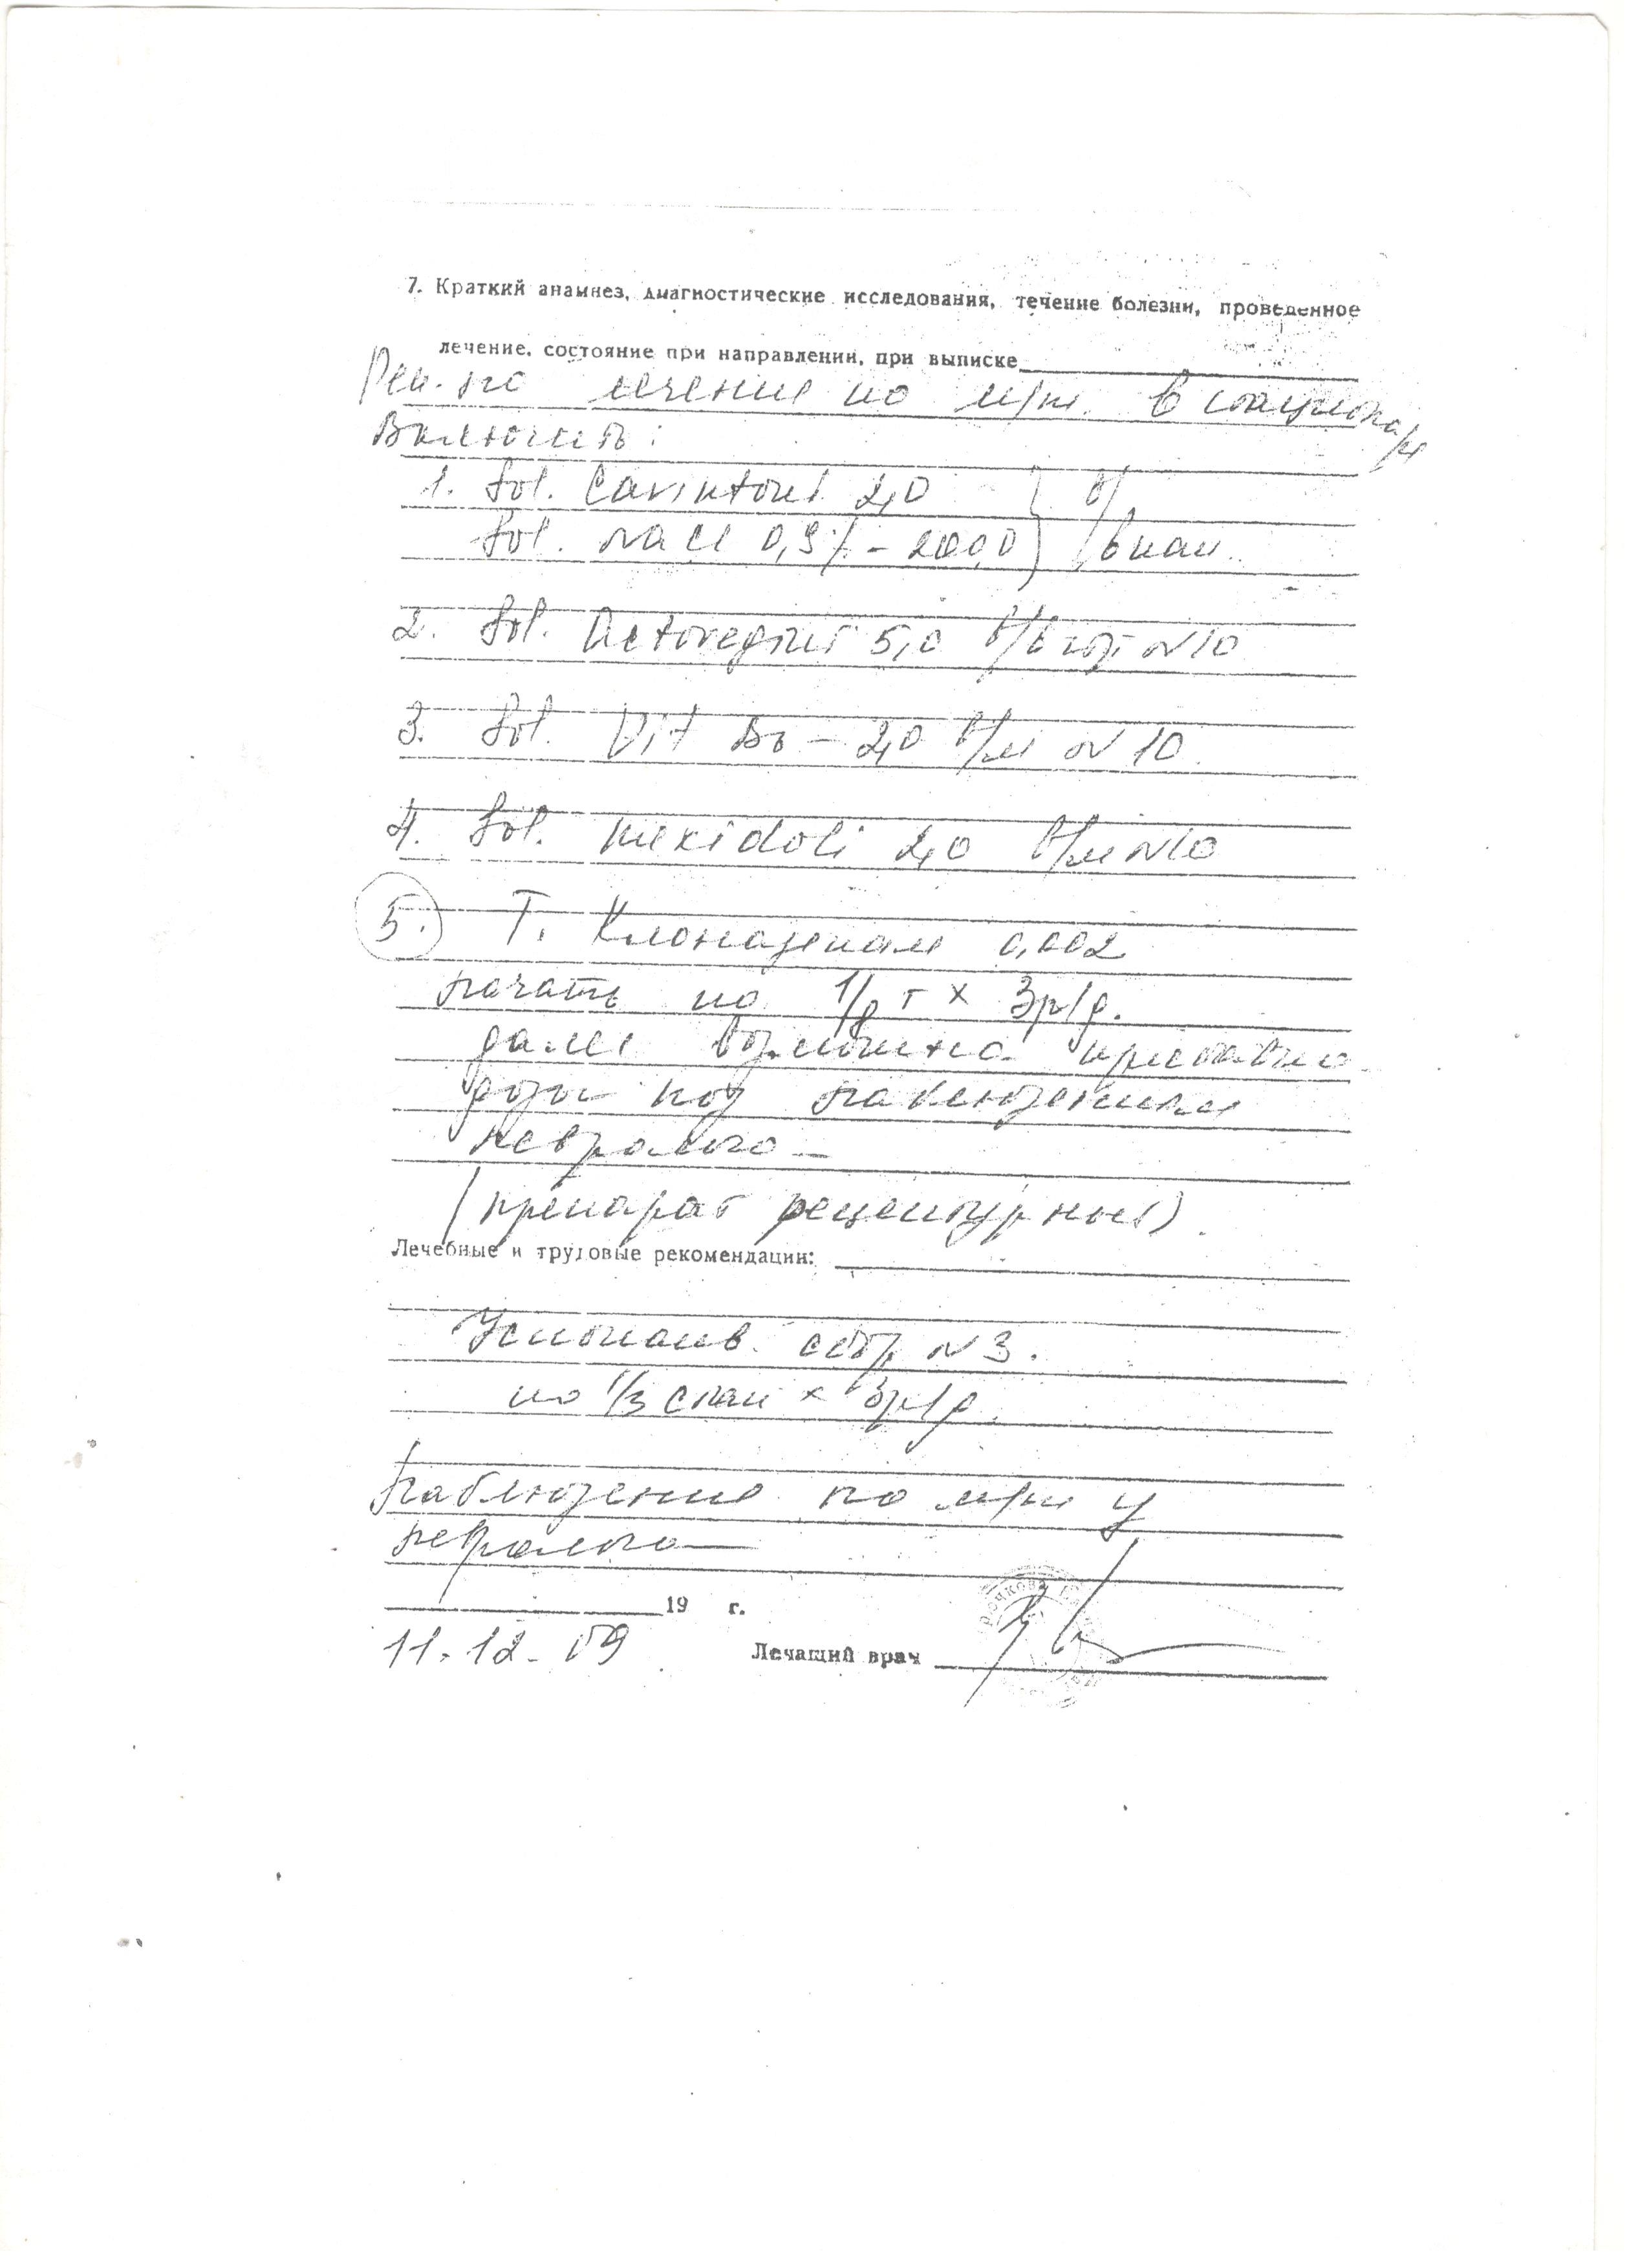 7. Краткий анамнез, диагностические исследования, течение болезни, проведенное
лечение, состояние при направлении, при выписке
Рек-но лечение по м/ж. в стационаре
Включить:
1. Sol. Cavintoni 2,0 в/
Sol. NaCl 0,9% - 200,0 в кап.
2. Sol. Actovegini 5,0 в/в N 10
3. Sol. Vit - 2,0 в/м N 10
4. Sol. Mexidoli 2,0 в/м N 10
5. Т. Клоназепам 0,002
начать по т х 3р/д.
далее возможно
дозы под наблюдением
невролога
(препарат рецептурный).
Лечебные и трудовые рекомендации:
Успокоив. сбор N 3.
по 1/3 стак х 3р/д.
Наблюдение по м/ж у
невролога
19 г.
11.12.09 Лечащий врач